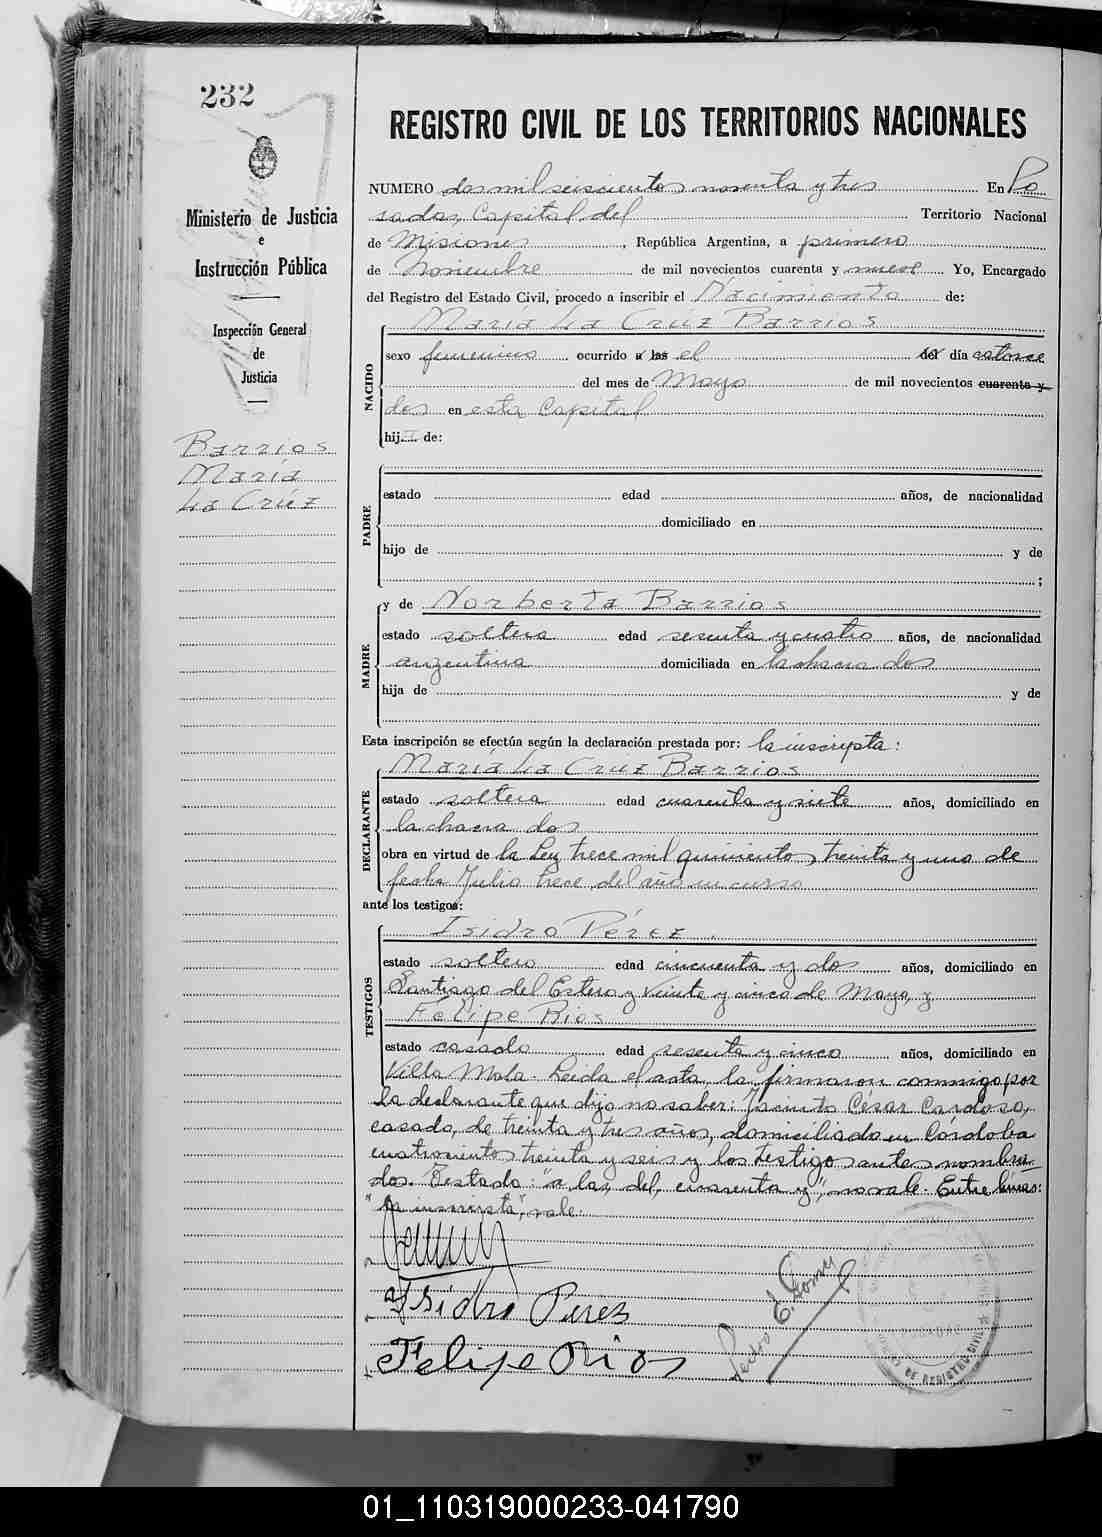 232
REGISTRO CIVIL DE LOS TERRITORIOS NACIONALES
Ministerio de Justicia
e
Instrucción Pública
Inspección General
de
Justicia
Barrios
María
La Crúz
NUMERO dos mil seiscientos noventa y tres En Po
sadas, Capital del Territorio Nacional
de Misiones, República Argentina, a primero
de Noviembre de mil novecientos cuarenta y nueve Yo, Encargado
del Registro del Estado Civil, procedo a inscribir el Nacimiento de:
NACIDO
María La Crúz Barrios
sexo femenino ocurrido a las el del día catorce
del mes de Mayo de mil novecientos cuarenta y
dos en esta Capital
hij de:
PADRE
estado edad años, de nacionalidad
domiciliado en
hijo de y de
;
MADRE
y de Norberta Barrios
estado soltera edad sesenta y cuatro años, de nacionalidad
argentina domiciliada en la chacra dos
hija de y de
Esta inscripción se efectúa según la declaración prestada por: la inscripta:
DECLARANTE
María La Cruz Barrios
estado soltera edad cuarenta y siete años, domiciliado en
la chacra dos
obra en virtud de la Ley trece mil quinientos treinta y uno de
fecha Julio trece del año en curso
ante los testigos:
TESTIGOS
Isidro Pérez.
estado soltero edad cincuenta y dos años, domiciliado en
Santiago del Estero y Veinte y cinco de Mayo, y
Felipe Rios
estado casado edad sesenta y cinco años, domiciliado en
Villa Mola. Leida el acta, la firmaron conmigo por
la declarante que dijo no saber: Jacinto César Cardoso,
casado, de treinta y tres años, domiciliado en Córdoba
cuatrocientos treinta y seis y los testigos antes nombra-
dos. Testado: "a las, del, cuarenta y", no vale. Entre líneas:
"la inscripta", vale.
Isidro Perez
Felipe Rios
Pedro E. Gomez
DE REGISTRO CIVIL
01_110319000233-041790